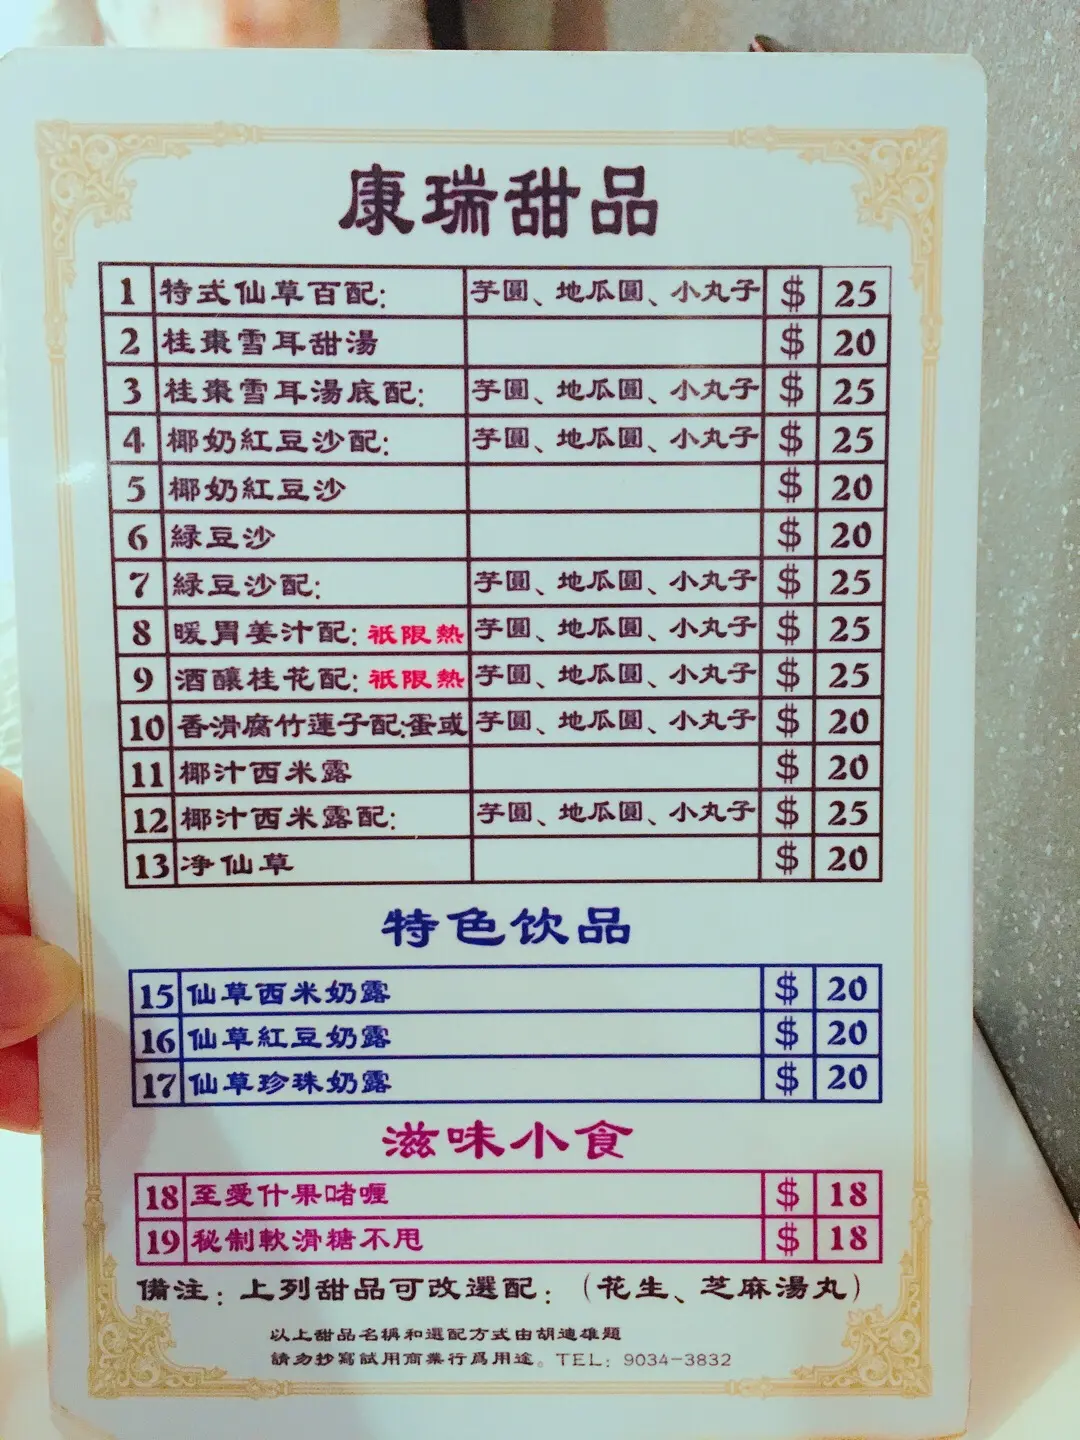 康瑞甜品
1 特式仙草百配: 芋圓、地瓜圓、小丸子 $ 25
2 桂棗雪耳甜湯 $ 20
3 桂棗雪耳湯底配: 芋圓、地瓜圓、小丸子 $ 25
4 椰奶紅豆沙配: 芋圓、地瓜圓、小丸子 $ 25
5 椰奶紅豆沙 $ 20
6 緑豆沙 $ 20
7 緑豆沙配: 芋圓、地瓜圓、小丸子 $ 25
8 暖胃姜汁配: 祇限熱 芋圓、地瓜圓、小丸子 $ 25
9 酒釀桂花配: 祇限熱 芋圓、地瓜圓、小丸子 $ 25
10 香滑腐竹蓮子配:蛋或 芋圓、地瓜圓、小丸子 $ 20
11 椰汁西米露 $ 20
12 椰汁西米露配: 芋圓、地瓜圓、小丸子 $ 25
13 净仙草 $ 20
特色饮品
15 仙草西米奶露 $ 20
16 仙草紅豆奶露 $ 20
17 仙草珍珠奶露 $ 20
滋味小食
18 至愛什果啫喱 $ 18
19 秘制軟滑糖不甩 $ 18
備注: 上列甜品可改選配: (花生、芝麻湯丸)
以上甜品名稱和選配方式由胡迪雄題
請勿抄寫試用商業行爲用途。TEL: 9034-3832